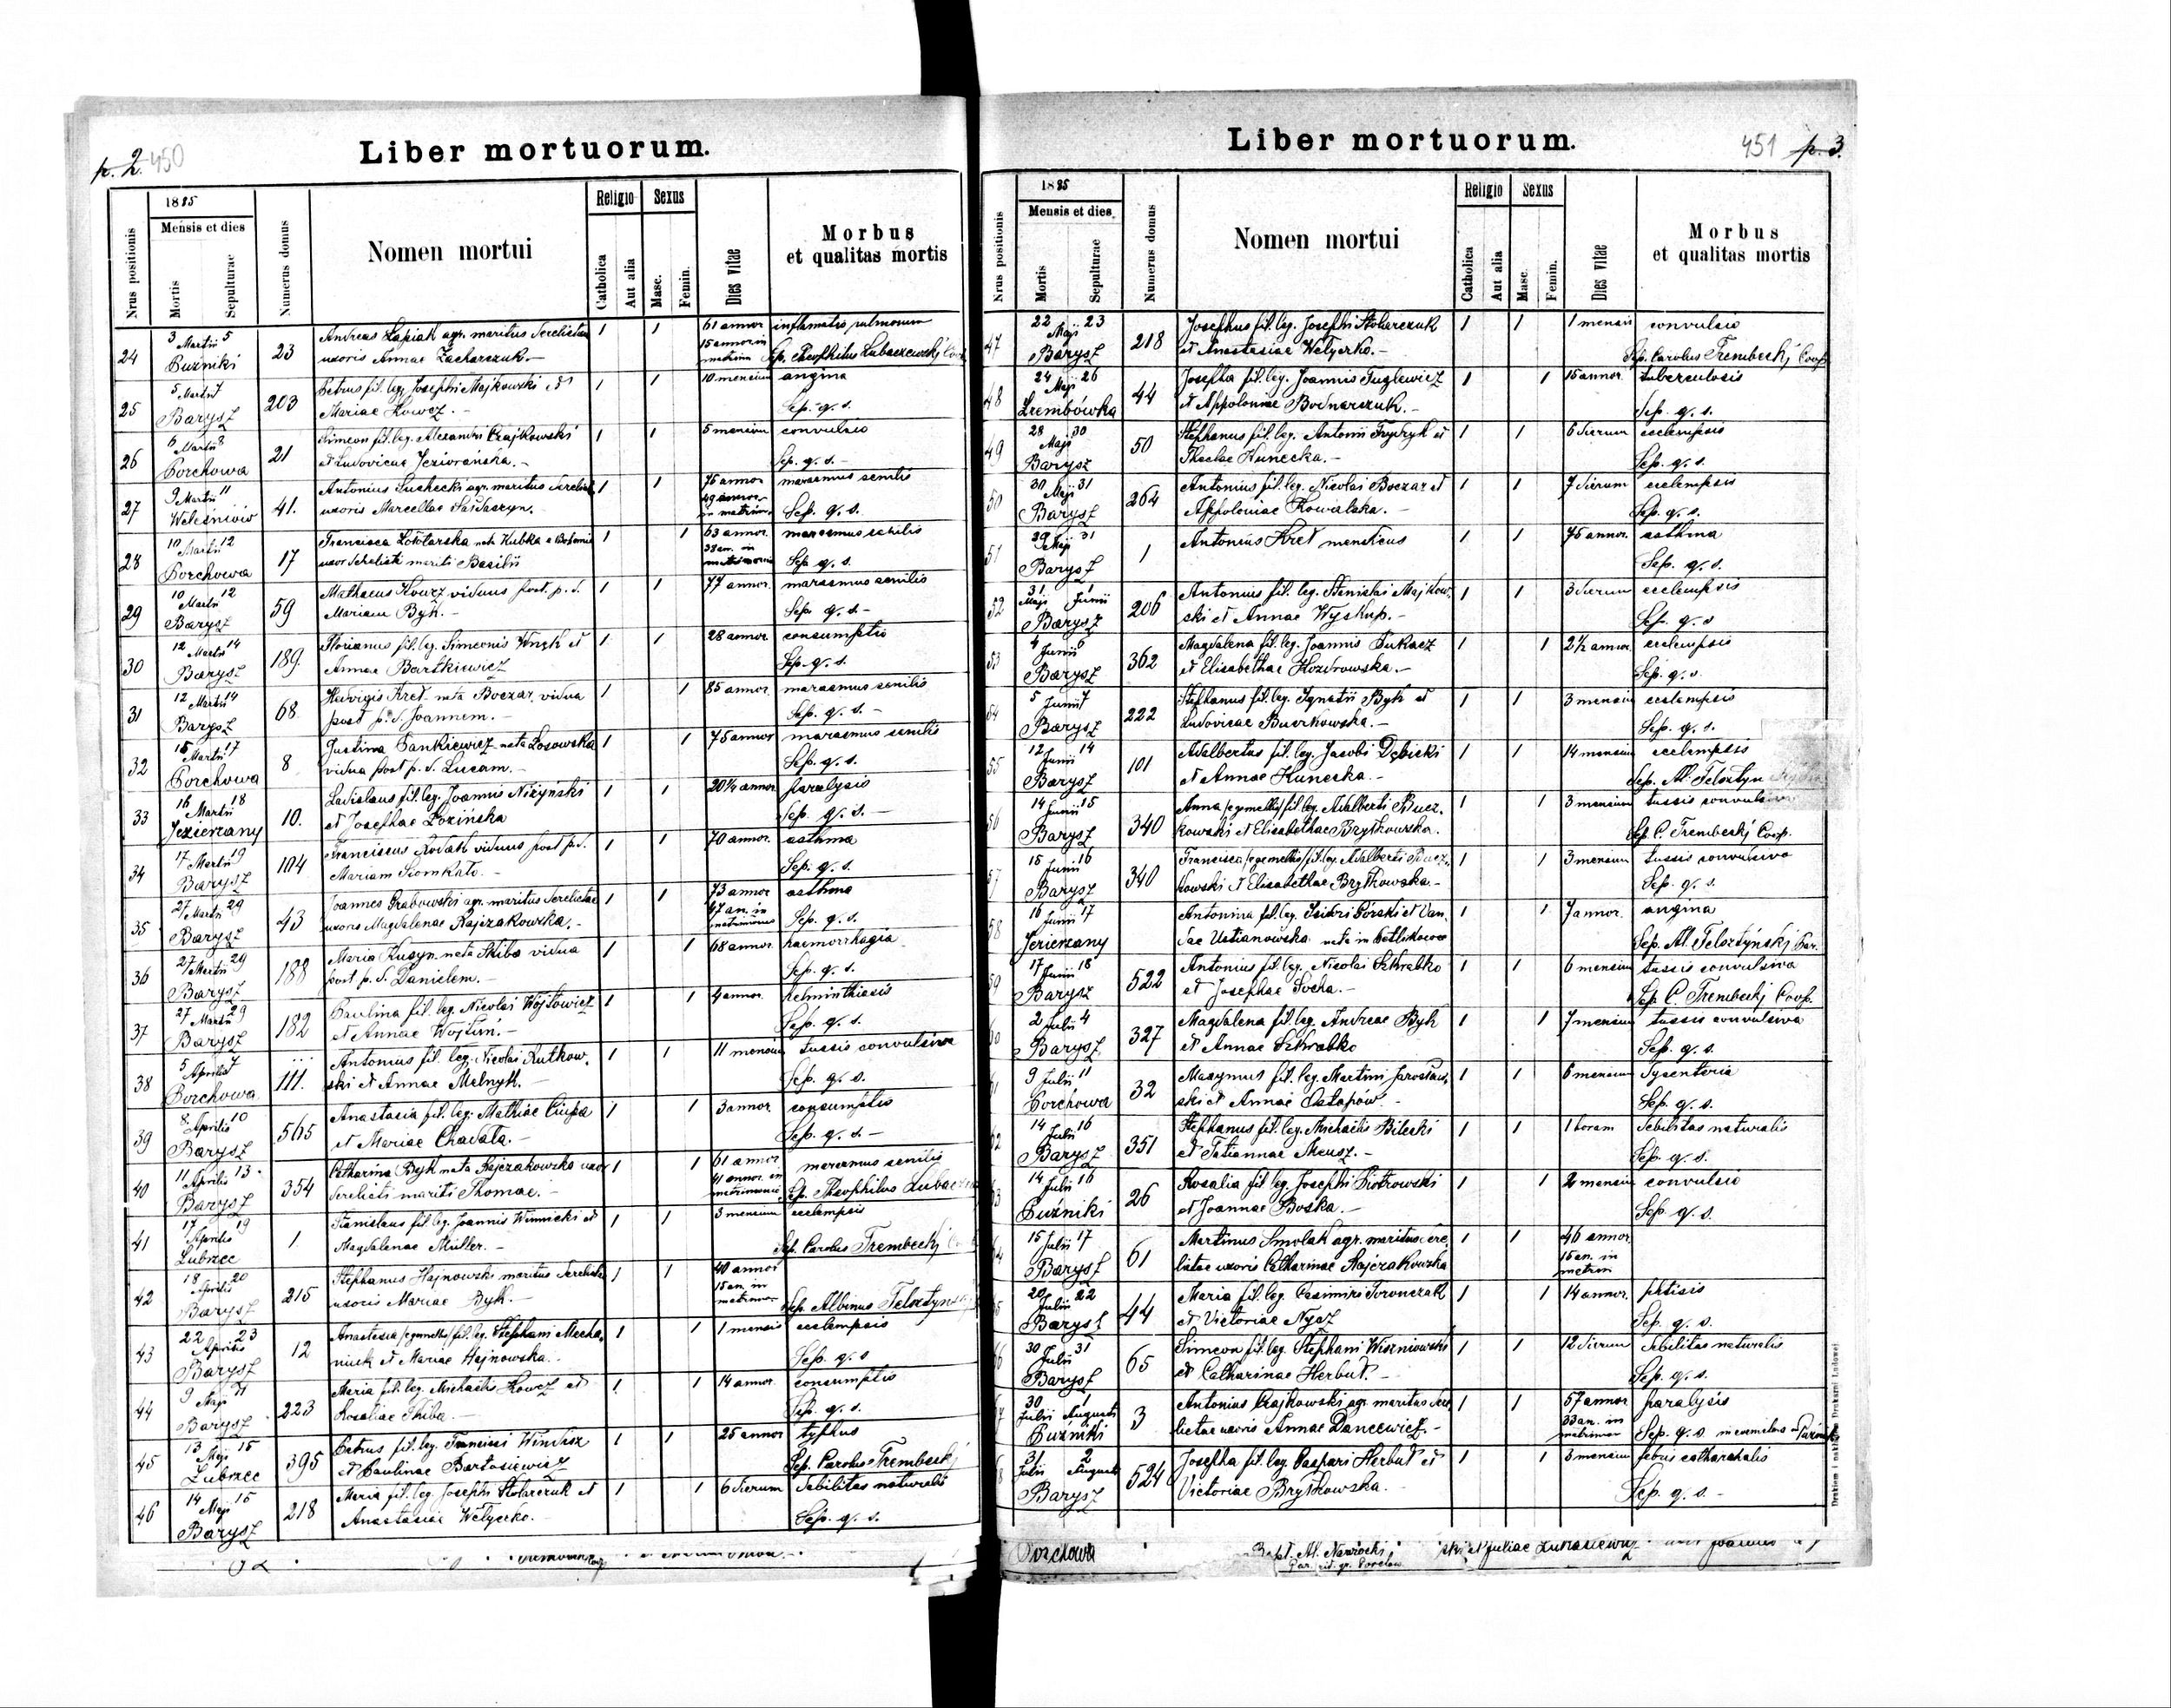 p. 2. 450
Liber mortuorum.
Nrus positionis
1885
Mensis et dies
Mortis
Sepulturae
Numerus domus
Nomen mortui
Religio
Catholica
Aut alia
Sexus
Masc.
Femin.
Dies vitae
Morbus
et qualitas mortis
3 Martii 5 Andreas Łapiak agr. maritus derelictae 1 1 61 annor. inflamatio pulmonum
24 Puźniki 23 uxoris Annae Zacharczuk.- 15 annor in matrim Sep. Theophilus Lubaczewski
5 Martii 7 Petrus fil. leg. Josephi Majkowski et 1 1 10 mensium angina
25 Barysz 203 Mariae Kowcz.- Sep. q. s.
6 Martii 8 Simeon fil. leg. Alexandri Czajkowski 1 1 5 mensium convulsio
26 Porchowa 21 et Ludovicae Jeziorańska.- Sep. q. s.-
9 Martii 11 Antonius Suchecki agr. maritus derelictae 1 1 75 annor marasmus senilis
27 Weleśniów 41. uxoris Marcellae 49 annor. in matrim. Sep. q. s.
10 Martii 12 Francisca nata Kubka e Bohemia 1 1 63 annor. marasmus senilis
28 Porchowa 17 uxor derelicti mariti Basilii 38 an. in matrimonio Sep. q. s.
10 Martii 12 Mathaeus Kowcz viduus post. p. d. 1 1 77 annor. marasmus senilis
29 Barysz 59 Mariam Byk.- Sep. q. s.-
12 Martii 14 Florianus fil. leg. Simeonis Wnęk et 1 1 28 annor consumptio
30 Barysz 189. Annae Bartkiewicz Sep. q. s.
12 Martii 14 Hedvigis Kret nata Boczar, vidua 1 1 85 annor. marasmus senilis
31 Barysz 68 post p. d. Joannem.- Sep. q. s.-
15 Martii 17 Justina Jankiewicz nata Łosowska 1 1 75 annor marasmus senilis
32 Porchowa 8 vidua post p. d. Lucam.- Sep. q. s.
16 Martii 18 Ladislaus fil. leg. Joannis Niżyński 1 1 20¼ annor paralysis
33 Jezierzany 10. et Josephae Łozińska Sep. q. s.-
17 Martii 19 Franciscus Kodak viduus post p. d. 1 1 70 annor. asthma
34 Barysz 104 Mariam Siomkało.- Sep. q. s.
27 Martii 29 Joannes Grabowski agr. maritus derelictae 1 1 73 annor asthma
35 Barysz 43 uxoris Magdalenae Rajczakowska.- 47 an. in matrimonio Sep. q. s.
27 Martii 29 Maria Kusyn nata Skiba vidua 1 1 68 annor. haemorrhagia
36 Barysz 188 post p. d. Danielem.- Sep. q. s.
27 Martii 29 Paulina fil. leg. Nicolai Wojtowicz 1 1 4 annor. helminthiasis
37 Barysz 182 et Annae Wojtuń.- Sep. q. s.
5 Aprilis 7 Antonius fil. leg. Nicolai Rutkow- 1 1 11 mensium tussis convulsiva
38 Porchowa 111. ski et Annae Melnyk.- Sep. q. s.
8 Aprilis 10 Anastasia fil. leg. Mathiae Ciupa 1 1 3 annor consumptio
39 Barysz 565 et Mariae Chadała.- Sep. q. s.-
11 Aprilis 13 Catharina Byk nata Rajczakowska uxor 1 1 61 annor marasmus senilis
40 Barysz 354 derelicti mariti Thomae.- 41 annor. in matrimonio Sep. Theophilus
17 Aprilis 19 Stanislaus fil. leg. Joannis Winnicki et 1 1 3 mensium ecclempsis
41 Lubrzec 1. Magdalenae Müller.- Sep. Carolus Trembecki
18 Aprilis 20 Stephanus Hajnowski maritus derelictae 1 1 40 annor
42 Barysz 215 uxoris Mariae Byk.- 15 an. in matrimon. Sep. Albinus
22 Aprilis 23 Anastasia /egemellis/ fil. leg. Stephani Mecha- 1 1 1 mensis ecclempsis
43 Barysz 12 niuk et Mariae Hajnowska.- Sep. q. s
9 Maji 11 Maria fil. leg. Michaelis Kowcz et 1 1 14 annor. consumptio
44 Barysz 223 Rosaliae Skiba.- Sep. q. s.
13 Maji 15 Petrus fil. leg. Francisci Windisz 1 1 25 annor typhus
45 Lubrzec 395 et Paulinae Bartosiewicz Sep. Carolus Trembecki
14 Maji 15 Maria fil. leg. Josephi Stolarczuk et 1 1 6 dierum debilitas naturalis
46 Barysz 218 Anastasiae Wetyerko.- Sep. q. s.
451 p. 3.
Liber mortuorum.
Nrus positionis
1885
Mensis et dies
Mortis
Sepulturae
Numerus domus
Nomen mortui
Religio
Catholica
Aut alia
Sexus
Masc.
Femin.
Dies vitae
Morbus
et qualitas mortis
22 Maji 23 Josephus fil. leg. Josephi Stolarczuk 1 1 1 mensis convulsio
47 Barysz 218 et Anastasiae Wetyerko.- Sep. Carolus Trembecki Coop.
24 Maji 26 Josepha fil. leg. Joannis Fuglewicz 1 1 15 annor. tuberculosis
48 44 et Appoloniae Bodnarczuk.- Sep. q. s.
28 Maji 30 Stephanus fil. leg. Antonii Frydryk et 1 1 6 dierum ecclempsis
49 Barysz 50 Theclae Kunecka.- Sep. q. s.
30 Maji 31 Antonius fil. leg. Nicolai Boczar et 1 1 7 dierum ecclempsis
50 Barysz 264 Appoloniae Kowalska.- Sep. q. s.
29 Maji 31 Antonius Kret mendicus 1 1 75 annor. asthma
51 Barysz 1 Sep. q. s.
31 Maji 1 Junii Antonius fil. leg. Stanislai Majkow- 1 1 3 dierum ecclempsis
52 Barysz 206 ski et Annae Wyskup.- Sep. q. s
4 Junii 6 Magdalena fil. leg. Joannis Łukacz 1 1 2½ annor. ecclempsis
53 Barysz 362 et Elisabethae Hozdrowska.- Sep. q. s.
5 Junii 7 Stephanus fil. leg. Ignatii Byk et 1 1 3 mensium ecclempsis
54 Barysz 222 Ludovicae Buczkowska.- Sep. q. s.
12 Junii 14 Adalbertus fil. leg. Jacobi Dębicki 1 1 14 mensium ecclempsis
55 Barysz 101 et Annae Kunecka.- Sep. Al.
14 Junii 15 Anna /egemellis/ fil. leg. Adalberti Bucz- 1 1 3 mensium tussis convulsiva
56 Barysz 340 kowski et Elisabethae Brytkowska. Sep. C. Trembecki Coop.
15 Junii 16 Francisca /egemellis/ fil. leg. Adalberti Bucz- 1 1 3 mensium tussis convulsiva
57 Barysz 340 kowski et Elisabethae Brytkowska.- Sep. q. s.
16 Junii 17 Antonina fil. leg. Isidori Górski et Van- 1 1 7 annor. angina
58 Jezierzany dae Ustianowska nata in Petlikowce Sep. Al. Par.
17 Junii 18 Antonius fil. leg. Nicolai Szkrabko 1 1 6 mensium tussis convulsiva
59 Barysz 522 et Josephae Socha.- Sep. C. Trembecki Coop.
2 Julii 4 Magdalena fil. leg. Andreae Byk 1 1 7 mensium tussis convulsiva
60 Barysz 327 et Annae Szkrabko Sep. q. s.
9 Julii 11 Maxymus fil. leg. Martini Jarosław- 1 1 6 mensium dysenteria
61 Porchowa 32 ski et Annae Ostapów.- Sep. q. s.
14 Julii 16 Stephanus fil. leg. Michaelis Bilecki 1 1 1 horam debilitas naturalis
62 Barysz 351 et Tatiannae Meusz.- Sep. q. s.
14 Julii 16 Rosalia fil. leg. Josephi Piotrowski 1 1 2 mensium convulsio
63 Puźniki 26 et Joannae Boska.- Sep. q. s.
15 Julii 17 Martinus Smolak agr. maritus dere- 1 1 46 annor
64 Barysz 61 lictae uxoris Catharinae Rajczakowska 15 an. in matrim
20 Julii 22 Maria fil. leg. Casimiri Toronczak 1 1 14 annor. phtisis
65 Barysz 44 et Victoriae Nysz Sep. q. s.
30 Julii 31 Simeon fil. leg. Stephani Wiszniowski 1 1 12 dierum debilitas naturalis
66 Barysz 65 et Catharinae Herbut.- Sep. q. s.
30 Julii 1 Augusti Antonius Czajkowski agr. maritus dere- 1 1 57 annor paralysis
67 Puźniki 3 lictae uxoris Annae Dancewicz.- 33 an. in matrimon Sep. q. s.
31 Julii 2 Augusti Josepha fil. leg. Caspari Herbut et 1 1 3 mensium febris catharrhalis
68 Barysz 524 Victoriae Brytkowska. Sep. q. s.-
Porchowa Bapt. Al. Nawrocki ski et Juliae Łukasiewicz